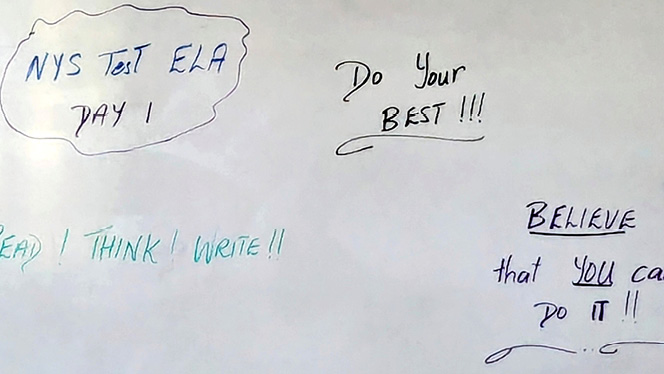 NYS Test ELA
DAY 1
Do Your
BEST !!!
EAD ! THINK ! WRITE !!
BELIEVE
that YOU ca
DO IT !!